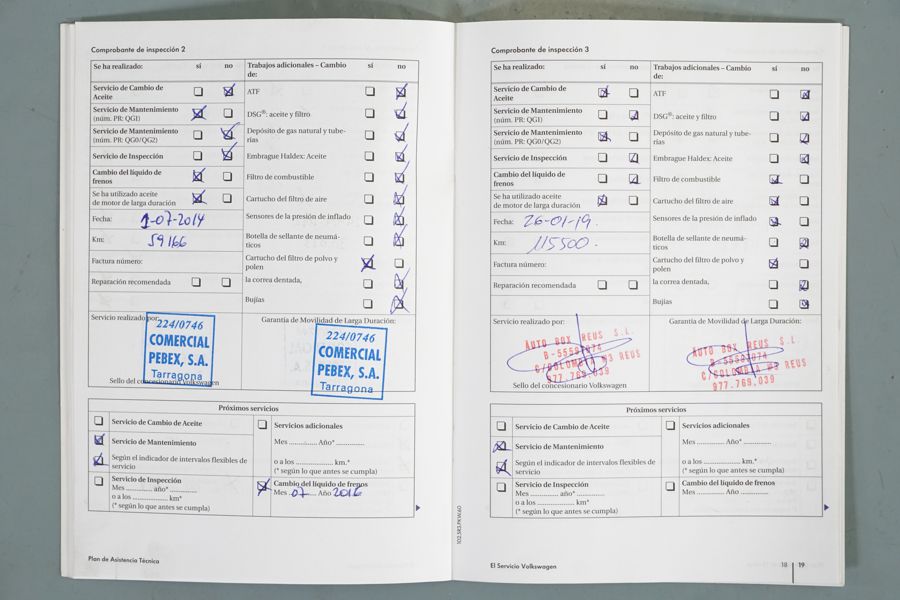 Comprobante de inspección 2
Se ha realizado: sí no
Servicio de Cambio de
Aceite
Servicio de Mantenimiento
(núm. PR: QG1)
Servicio de Mantenimiento
(núm. PR: QG0/QG2)
Servicio de Inspección
Cambio del líquido de
frenos
Se ha utilizado aceite
de motor de larga duración
Fecha: 1-07-2014
Km: 59166
Factura número:
Reparación recomendada
Trabajos adicionales – Cambio sí no
de:
ATF
DSG®: aceite y filtro
Depósito de gas natural y tube-
rías
Embrague Haldex: Aceite
Filtro de combustible
Cartucho del filtro de aire
Sensores de la presión de inflado
Botella de sellante de neumá-
ticos
Cartucho del filtro de polvo y
polen
la correa dentada,
Bujías
Servicio realizado por:
224/0746
COMERCIAL
PEBEX, S.A.
Tarragona
Sello del concesionario Volkswagen
Garantía de Movilidad de Larga Duración:
224/0746
COMERCIAL
PEBEX, S.A.
Tarragona
Próximos servicios
Servicio de Cambio de Aceite
Servicio de Mantenimiento
Según el indicador de intervalos flexibles de
servicio
Servicio de Inspección
Mes .............. año* ..............
o a los .................. km*
(* según lo que antes se cumpla)
Servicios adicionales
Mes .............. Año* ..............
o a los .................. km.*
(* según lo que antes se cumpla)
Cambio del líquido de frenos
Mes 07 Año 2016
Plan de Asistencia Técnica
102.5R3.PKW.60
Comprobante de inspección 3
Se ha realizado: sí no
Servicio de Cambio de
Aceite
Servicio de Mantenimiento
(núm. PR: QG1)
Servicio de Mantenimiento
(núm. PR: QG0/QG2)
Servicio de Inspección
Cambio del líquido de
frenos
Se ha utilizado aceite
de motor de larga duración
Fecha: 26-01-19.
Km: 115500.
Factura número:
Reparación recomendada
Trabajos adicionales – Cambio sí no
de:
ATF
DSG®: aceite y filtro
Depósito de gas natural y tube-
rías
Embrague Haldex: Aceite
Filtro de combustible
Cartucho del filtro de aire
Sensores de la presión de inflado
Botella de sellante de neumá-
ticos
Cartucho del filtro de polvo y
polen
la correa dentada,
Bujías
Servicio realizado por:
AUTO BOX REUS S.L.
REUS
977.769.039
Sello del concesionario Volkswagen
Garantía de Movilidad de Larga Duración:
AUTO BOX REUS S.L.
REUS
977.769.039
Próximos servicios
Servicio de Cambio de Aceite
Servicio de Mantenimiento
Según el indicador de intervalos flexibles de
servicio
Servicio de Inspección
Mes .............. año* ..............
o a los .................. km*
(* según lo que antes se cumpla)
Servicios adicionales
Mes .............. Año* ..............
o a los .................. km.*
(* según lo que antes se cumpla)
Cambio del líquido de frenos
Mes .............. Año ..............
El Servicio Volkswagen
18 19